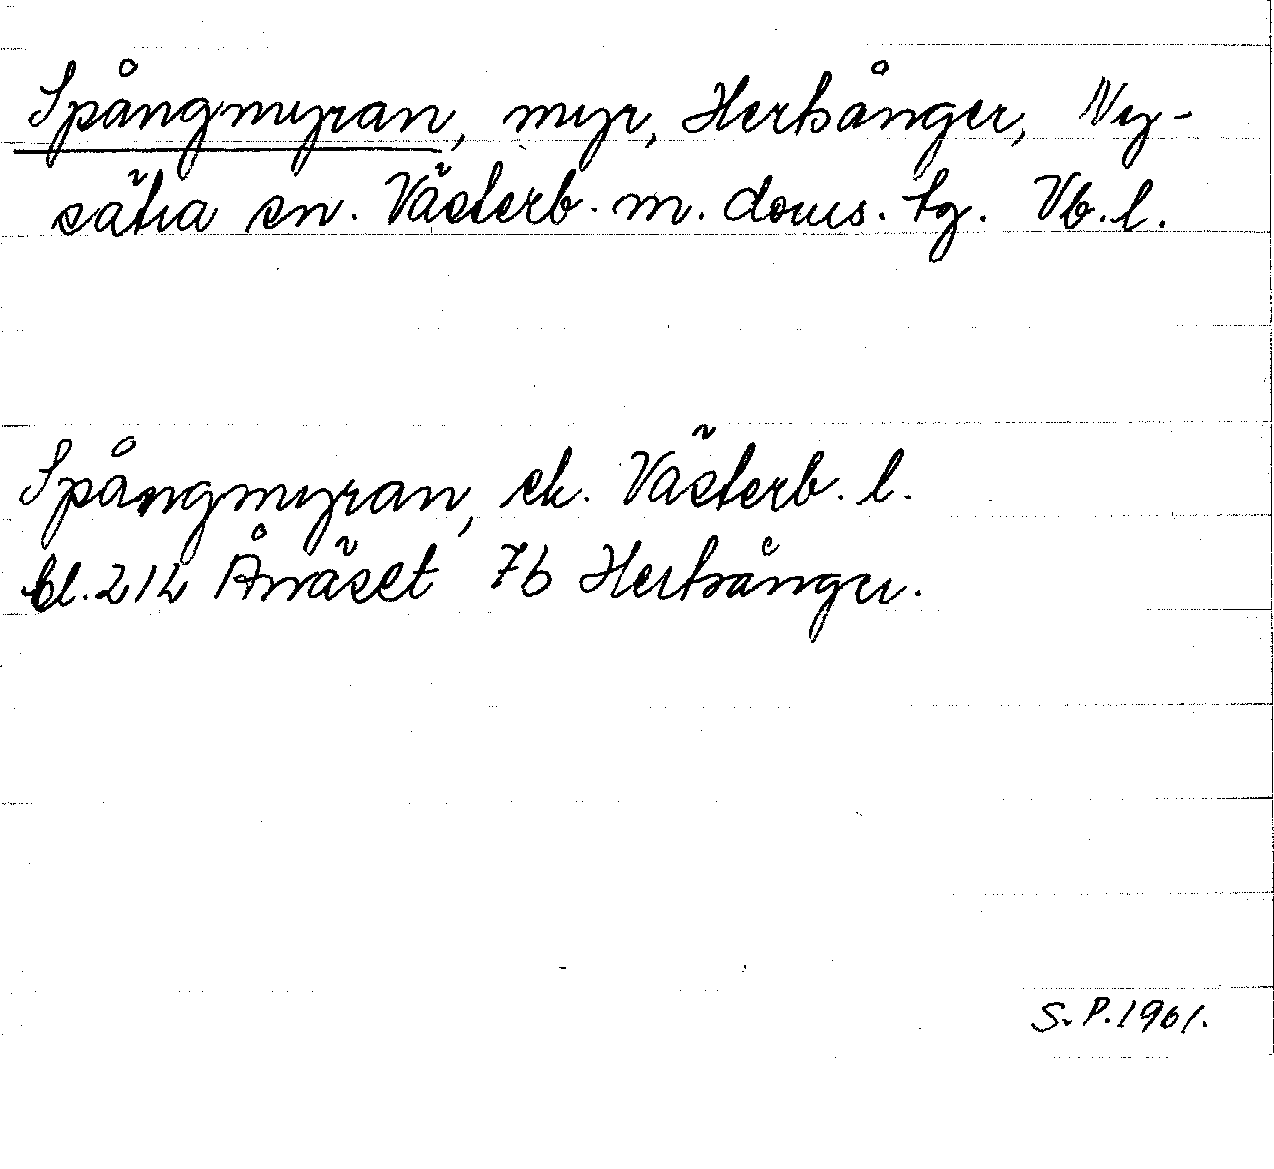 Spångmyran, myr, Hertsånger, Ny-
sätra sn. Västerb. m. doms. tg. Vb. l.
Spångmyran, ek. Västerb. l.
bl. 212 Ånäset 7b Hertsånger.
S. P. 1961.